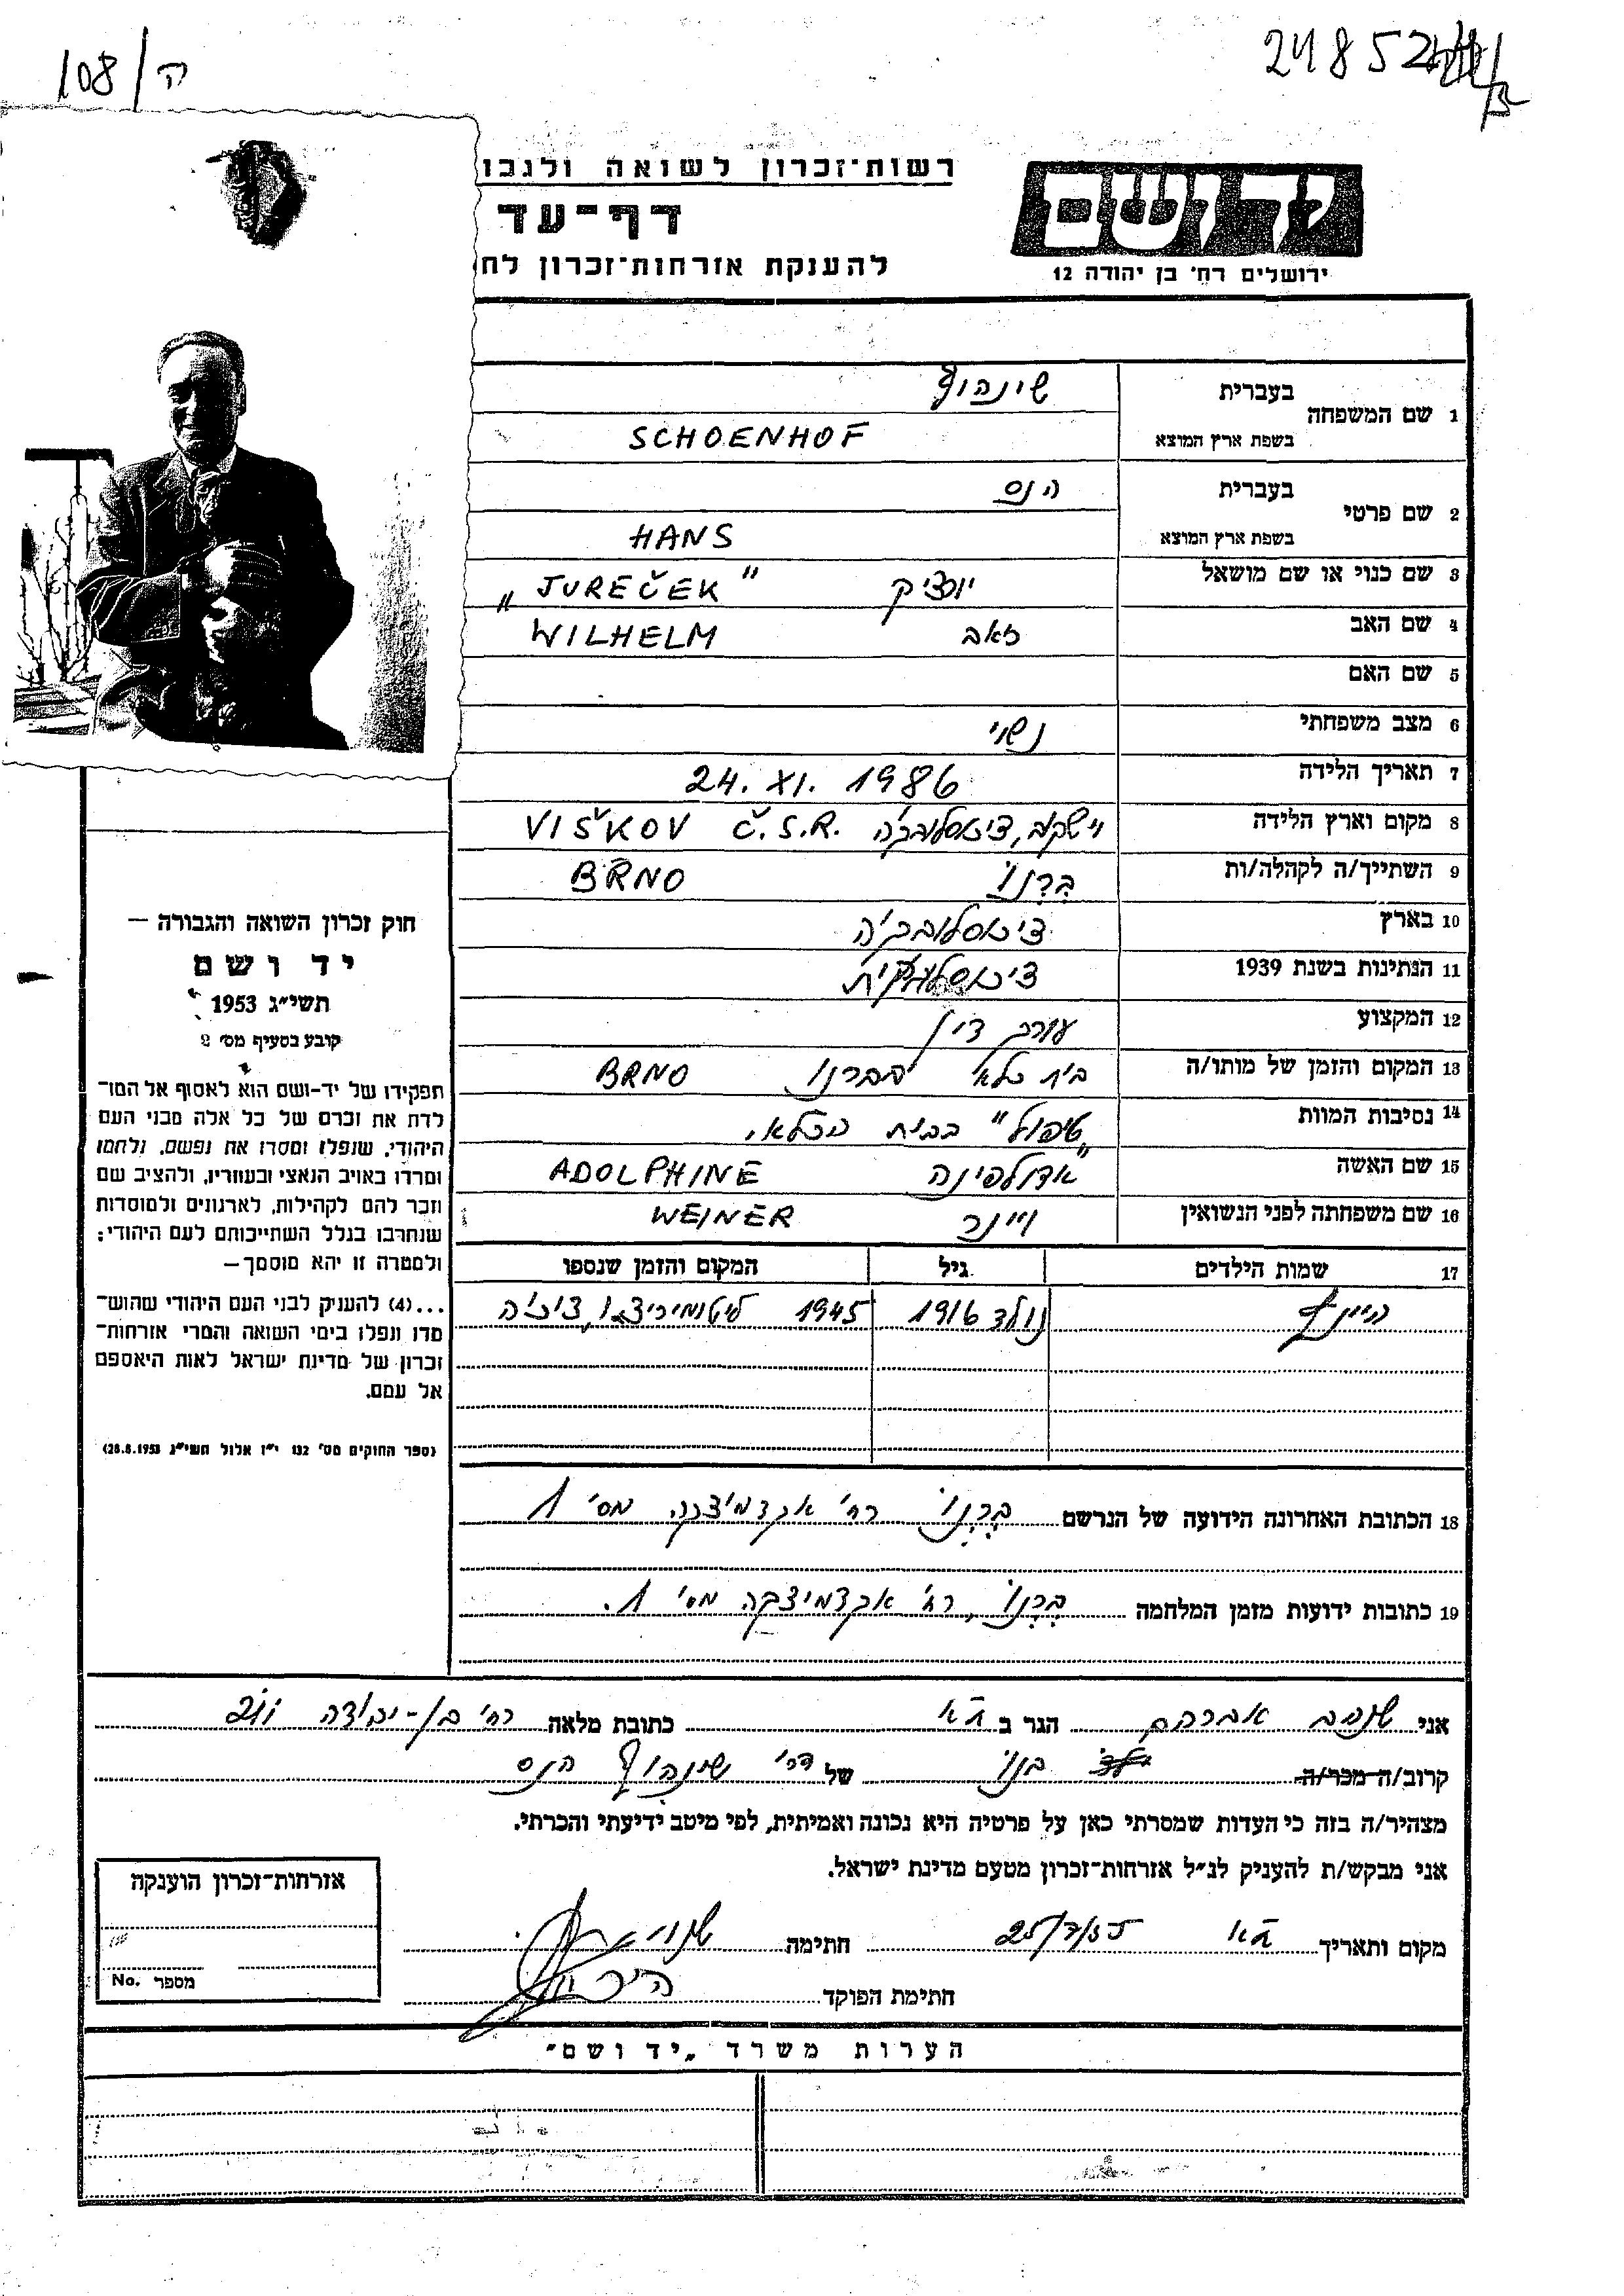 108/ה
24852
רשות־זכרון לשואה ולגבו
דף־עד
להענקת אזרחות־זכרון לח
יד ושם
ירושלים רח׳ בן יהודה 12
1 שם המשפחה בעברית שינהוף
בשפת ארץ המוצא SCHOENHOF
2 שם פרטי בעברית הנס
בשפת ארץ המוצא HANS
3 שם כנוי או שם מושאל „JUREČEK"
4 שם האב זאב WILHELM
5 שם האם
6 מצב משפחתי נשוי
7 תאריך הלידה 24. XI. 1986
8 מקום וארץ הלידה VIŠKOV Č.S.R.
9 השתייך/ה לקהלה/ות בְּרְנוֹ BRNO
10 בארץ
11 הנתינות בשנת 1939
12 המקצוע עורך דין
13 המקום והזמן של מותו/ה בית כלא בברנו BRNO
14 נסיבות המוות „טיפול" בבית הכלא.
15 שם האשה אדולפינה ADOLPHINE
16 שם משפחתה לפני הנשואין ויינר WEINER
17 שמות הילדים גיל המקום והזמן שנספו
נולד 1916 1945
18 הכתובת האחרונה הידועה של הנרשם בְּרְנוֹ רח׳ אקדמיצקה מס׳ 1
19 כתובות ידועות מזמן המלחמה בְּרְנוֹ, רח׳ אקדמיצקה מס׳ 1.
חוק זכרון השואה והגבורה —
יד ושם
תשי״ג 1953
קובע בסעיף מס׳ 2
תפקידו של יד-ושם הוא לאסוף אל המו־
לדת את זכרם של כל אלה מבני העם
היהודי, שנפלו ומסרו את נפשם, נלחמו
ומרדו באויב הנאצי ובעוזריו, ולהציב שם
וזכר להם לקהילות, לארגונים ולמוסדות
שנחרבו בגלל השתייכותם לעם היהודי;
ולמטרה זו יהא מוסמך —
...(4) להעניק לבני העם היהודי שהוש־
מדו ונפלו בימי השואה והמרי אזרחות־
זכרון של מדינת ישראל לאות היאספם
אל עמם.
(ספר החוקים מס׳ 132 י״ז אלול תשי״ג 28.8.1953)
אני אברהם הגר ב ת״א כתובת מלאה רח׳ בן-יהודה
קרוב/ה מכר/ה בנו של דר׳ שינהוף הנס
מצהיר/ה בזה כי העדות שמסרתי כאן על פרטיה היא נכונה ואמיתית, לפי מיטב ידיעתי והכרתי.
אני מבקש/ת להעניק לנ״ל אזרחות־זכרון מטעם מדינת ישראל.
מקום ותאריך ת״א 25/7/55 חתימה
חתימת הפוקד
אזרחות־זכרון הוענקה
מספר No.
הערות משרד „יד ושם"